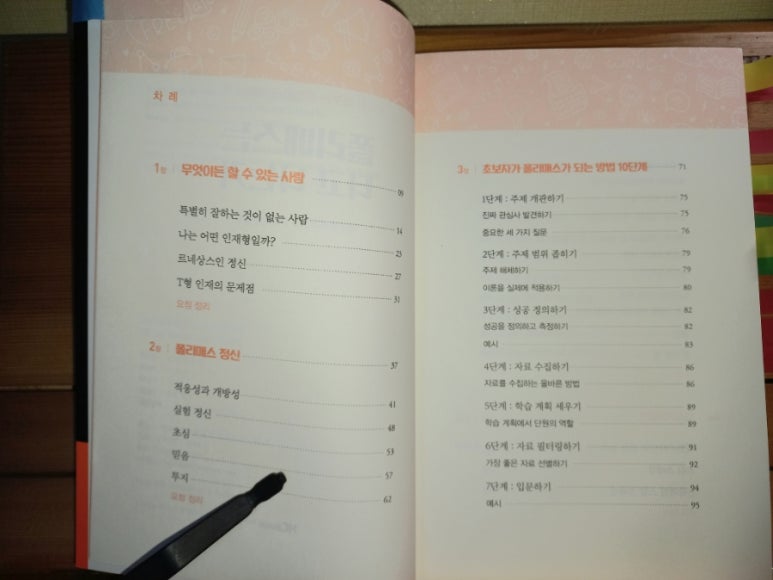 차 례
1장 | 무엇이든 할 수 있는 사람 09
특별히 잘하는 것이 없는 사람 14
나는 어떤 인재형일까? 23
르네상스인 정신 27
T형 인재의 문제점 31
요점 정리
2장 | 폴리매스 정신 37
적응성과 개방성 41
실험 정신 48
초심 53
믿음 57
투지 62
요점 정리
3장 | 초보자가 폴리매스가 되는 방법 10단계 71
1단계 : 주제 개관하기 75
진짜 관심사 발견하기 75
중요한 세 가지 질문 76
2단계 : 주제 범위 좁히기 79
주제 해체하기 79
이론을 실제에 적용하기 80
3단계 : 성공 정의하기 82
성공을 정의하고 측정하기 82
예시 83
4단계 : 자료 수집하기 86
자료를 수집하는 올바른 방법 86
5단계 : 학습 계획 세우기 89
학습 계획에서 단원의 역할 89
6단계 : 자료 필터링하기 91
가장 좋은 자료 선별하기 92
7단계 : 입문하기 94
예시 95